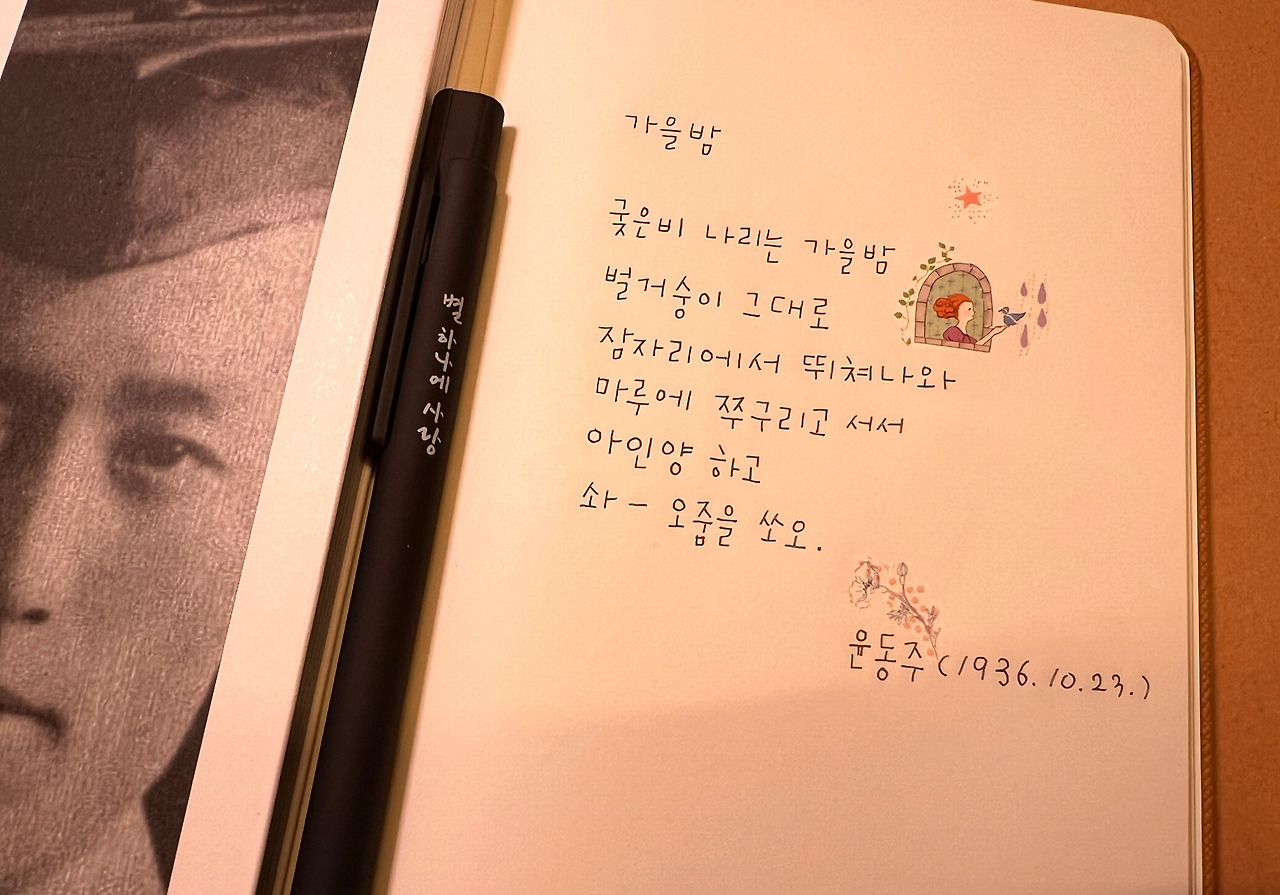 별 하나에 사랑
가을밤
궂은비 나리는 가을밤
벌거숭이 그대로
잠자리에서 뛰쳐나와
마루에 쭈구리고 서서
아인양 하고
솨 - 오줌을 쏘오.
윤동주(1936.10.23.)